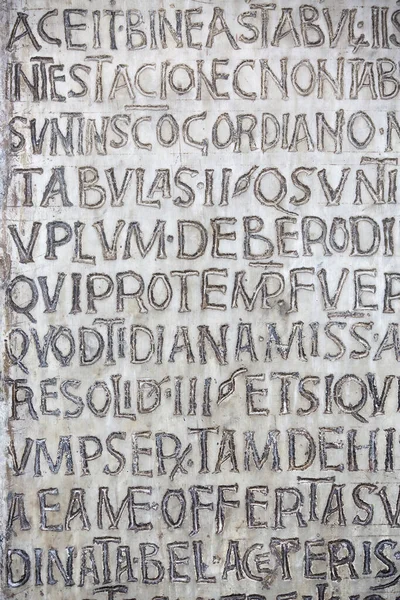 ACEIT·BINEAS TABUL·IIS
INTESTACIONE C NON TAB
SVNT INSCO GORDIANO·N
TABULAS II QSUNTI
VPLVM·DEBERO DI
QVI PROTEMP FVER
QVODTIDIANA MISSA
RE SOLID III ET SI QVI
VMPSERX TAM DE HI
AEAME OFFERTA SV
DINATA BEL ACETERIS